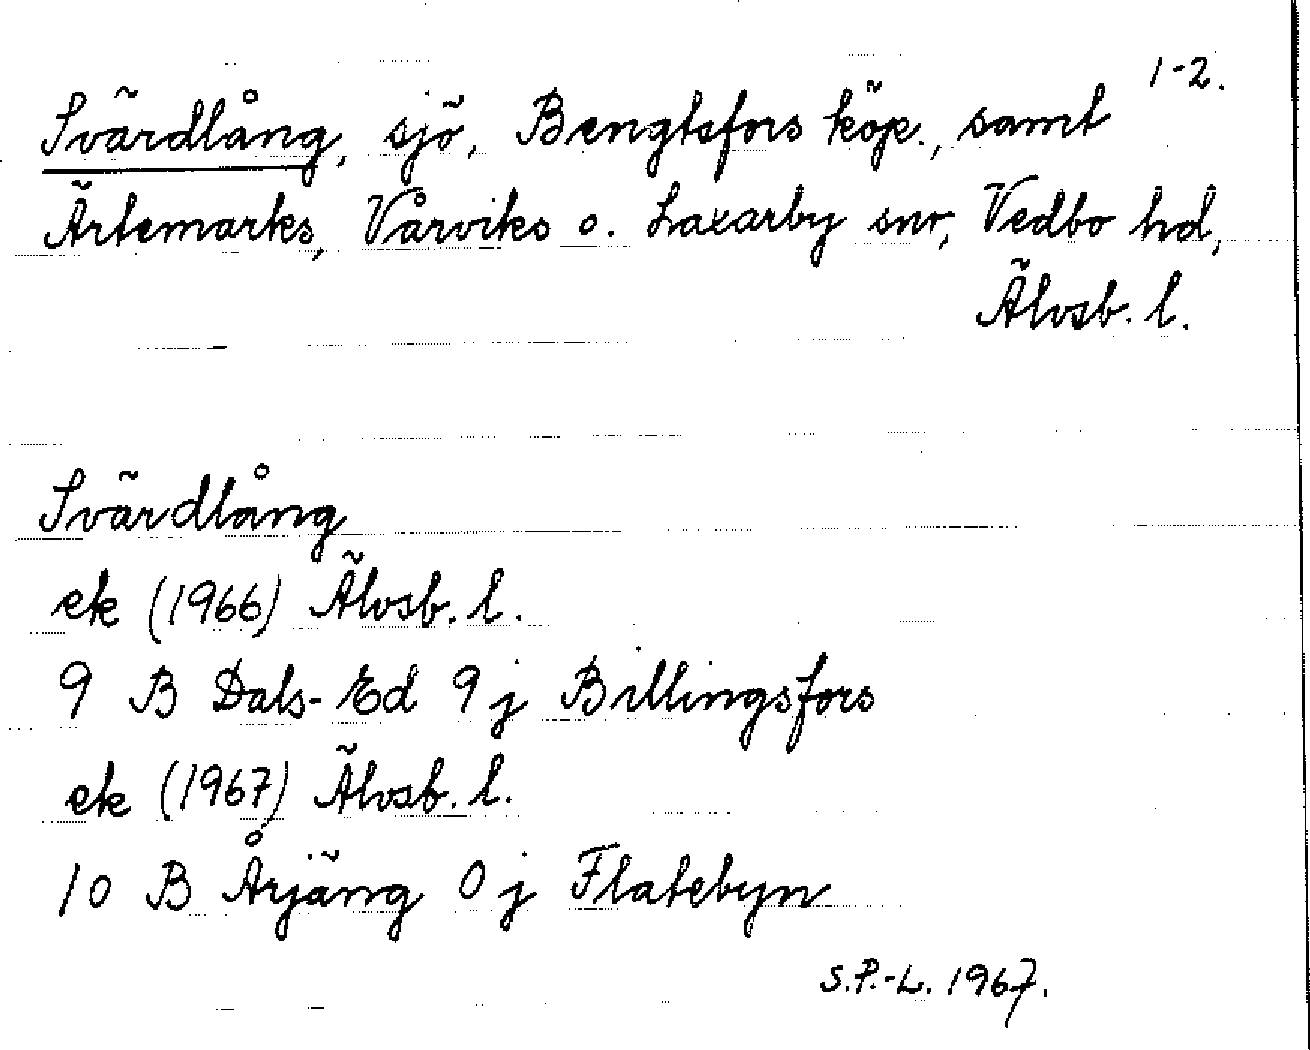 1-2.
Svärdlång, sjö, Bengtsfors köp., samt
Ärtemarks, Vårviks o. Laxarby snr, Vedbo hd,
Älvsb. l.
Svärdlång
ek (1966) Älvsb. l.
9 B Dals-Ed 9 j Billingsfors
ek (1967) Älvsb. l.
10 B Årjäng 0 j Flatebyn
S.P.-L. 1967.